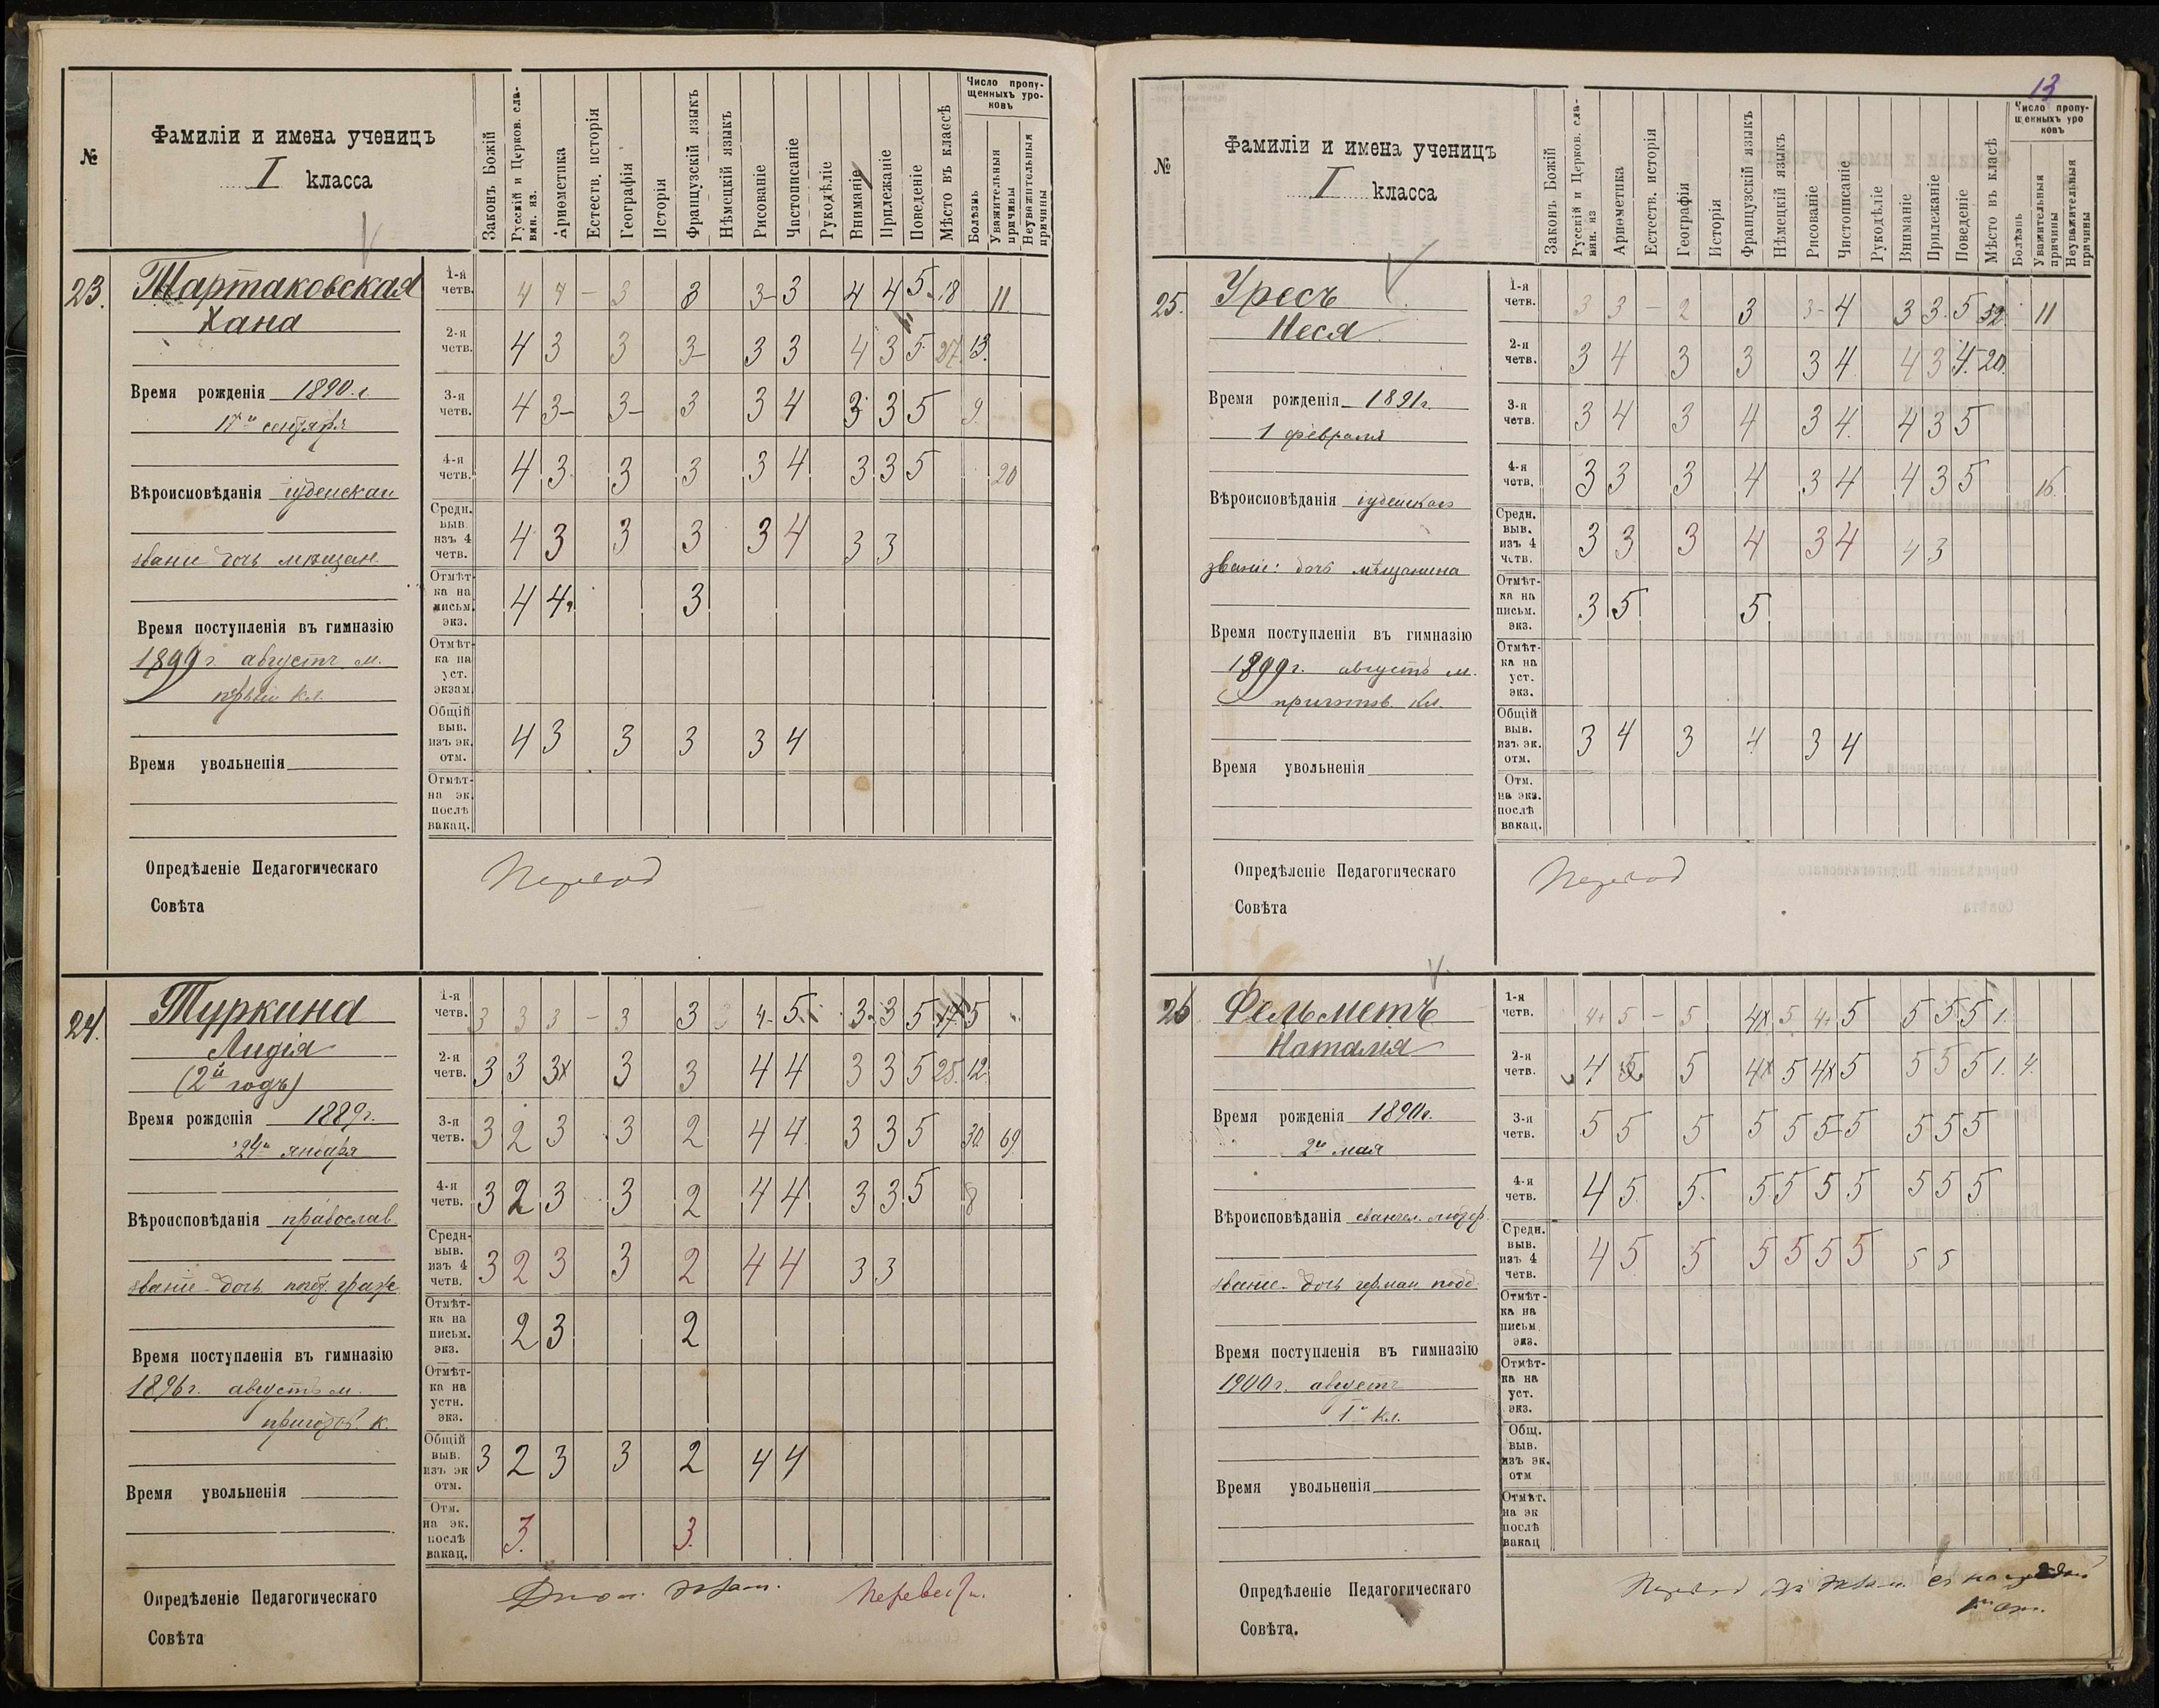 №
Фамиліи и имена ученицъ
I класса
Законъ Божій
Русскій и Церков. сла-
вян. яз.
Ариѳметика
Естеств. исторія
Географія
Исторія
Французскій языкъ
Нѣмецкій языкъ
Рисованіе
Чистописаніе
Рукодѣліе
Вниманіе
Прилежаніе
Поведеніе
Мѣсто въ классѣ
Число пропу-
щенныхъ уро-
ковъ
Болѣзнь
Уважительныя
причины
Неуважительныя
причины
23.
Тартаковская
Хана
Время рожденія 1890. г.
17го сентября
Вѣроисповѣданія іудейскаго
званіе дочь мѣщан.
Время поступленія въ гимназію
1899 г. августъ м.
первый кл.
Время увольненія
1-я четв. 4 4 – 3 3 3– 3 4 4 5 18 11
2-я четв. 4 3 3 3– 3 3 4 3 5 27. 13.
3-я четв. 4 3– 3– 3 3 4 3 3 5 9.
4-я четв. 4 3 3 3 3 4 3 3 5 20
Средн. выв. изъ 4 четв. 4 3 3 3 3 4 3 3
Отмѣт-ка на письм. экз. 4 4 3
Отмѣт-ка на уст. экзам.
Общій выв. изъ эк. отм. 4 3 3 3 3 4
Отмѣт-на эк. послѣ вакац.
Опредѣленіе Педагогическаго
Совѣта
Перевод
24.
Туркина
Лидія
(2й годъ)
Время рожденія 1889 г.
24го января
Вѣроисповѣданія православ.
званіе дочь почет. граж.
Время поступленія въ гимназію
1896 г. августъ м.
приготов. к.
Время увольненія
1-я четв. 3 3 3 – 3 3 3 4– 5 3 3 5 5
2-я четв. 3 3 3х 3 3 4 4 3 3 5 25. 12.
3-я четв. 3 2 3 3 2 4 4 3 3 5 30. 69.
4-я четв. 3 2 3 3 2 4 4 3 3 5 8
Средн. выв. изъ 4 четв. 3 2 3 3 2 4 4 3 3
Отмѣт-ка на письм. экз. 2 3 2
Отмѣт-ка на устн. экз.
Общій выв. изъ эк отм. 3 2 3 3 2 4 4
Отм. на эк. послѣ вакац. 3. 3.
Опредѣленіе Педагогическаго
Совѣта
экзам. Перевести.
13
№
Фамиліи и имена ученицъ
I класса
Законъ Божій
Русскій и Церков. сла-
вян. яз
Ариѳметика
Естеств. исторія
Географія
Исторія
Французскій языкъ
Нѣмецкій языкъ
Рисованіе
Чистописаніе
Рукодѣліе
Вниманіе
Прилежаніе
Поведеніе
Мѣсто въ класѣ
Число пропу-
щенныхъ уро
ковъ
Болѣзнь
Уважительныя
причины
Неуважительныя
причины
25.
Уресъ
Неся
Время рожденія 1891 г.
1 февраля
Вѣроисповѣданія іудейскаго
званіе: дочь мѣщанина
Время поступленія въ гимназію
1899 г. августъ м.
приготов. кл.
Время увольненія
1-я четв. 3 3 – 2 3 3– 4 3 3 5 32. 11
2-я четв. 3 4 3 3 3 4 4 3 4. 20.
3-я четв. 3 4 3 4 3 4 4 3 5
4-я четв. 3 3 3 4 3 4 4 3 5 16.
Средн. выв. изъ 4 четв. 3 3 3 4 3 4 4 3
Отмѣт-ка на письм. экз. 3 5 5
Отмѣт-ка на уст. экз.
Общій выв. изъ эк. отм. 3 4 3 4 3 4
Отм. на экз. послѣ вакац.
Опредѣленіе Педагогическаго
Совѣта
Перевод
26
Фельметъ
Наталія
Время рожденія 1890 г.
2го мая
Вѣроисповѣданія евангел. лютер.
званіе дочь герман. подд.
Время поступленія въ гимназію
1900 г. августъ
1й кл.
Время увольненія
1-я четв. 4+ 5 – 5 4х 5 4+ 5 5 5 5 1.
2-я четв. 4 5 5 4х 5 4х 5 5 5 5 1. 4.
3-я четв. 5 5 5 5 5 5– 5 5 5 5
4-я четв. 4 5 5. 5 5 5 5 5 5 5
Средн. выв. изъ 4 четв. 4 5 5 5 5 5 5 5 5
Отмѣт-ка на письм. экз.
Отмѣт-ка на уст. экз.
Общ. выв. изъ эк. отм
Отмѣт. на эк послѣ вакац
Опредѣленіе Педагогическаго
Совѣта.
Перевод экзам. съ наградой
1й ст.